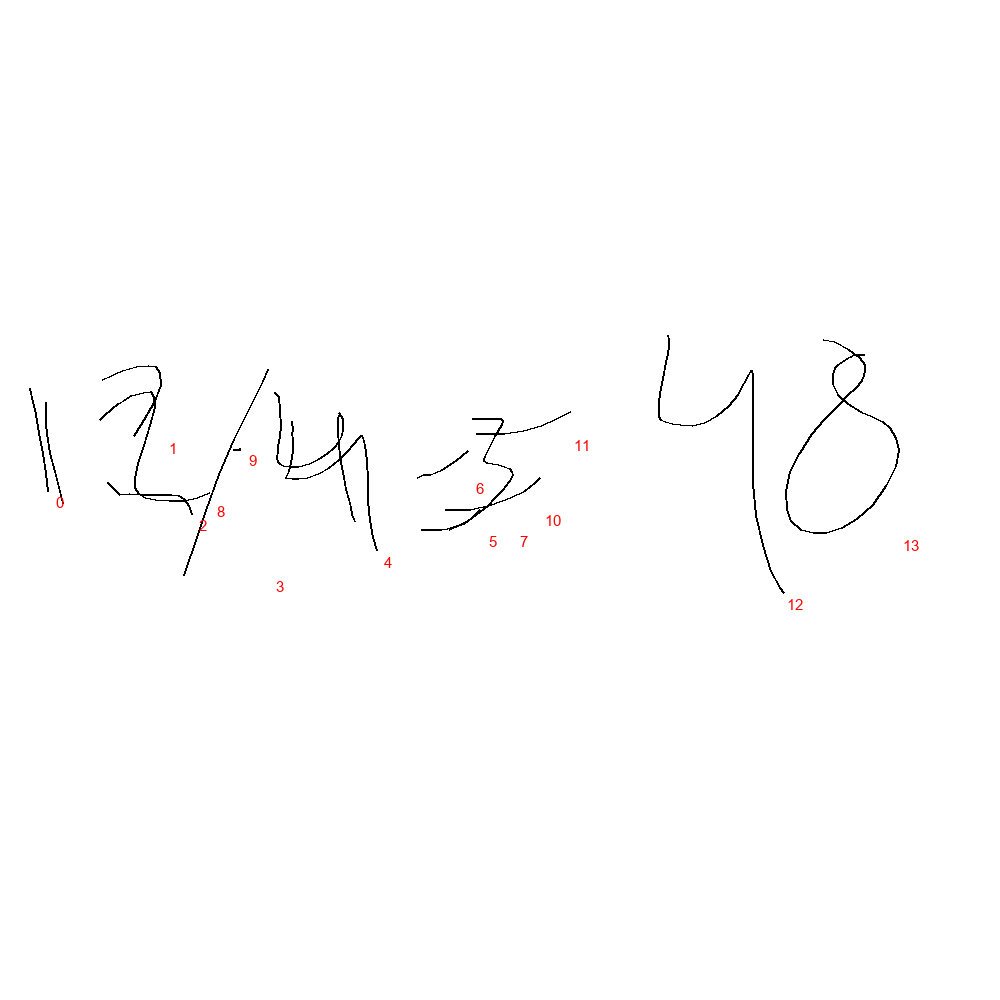 12/4=48
0 1 2 8 9 3 4 6 5 7 10 11 12 13